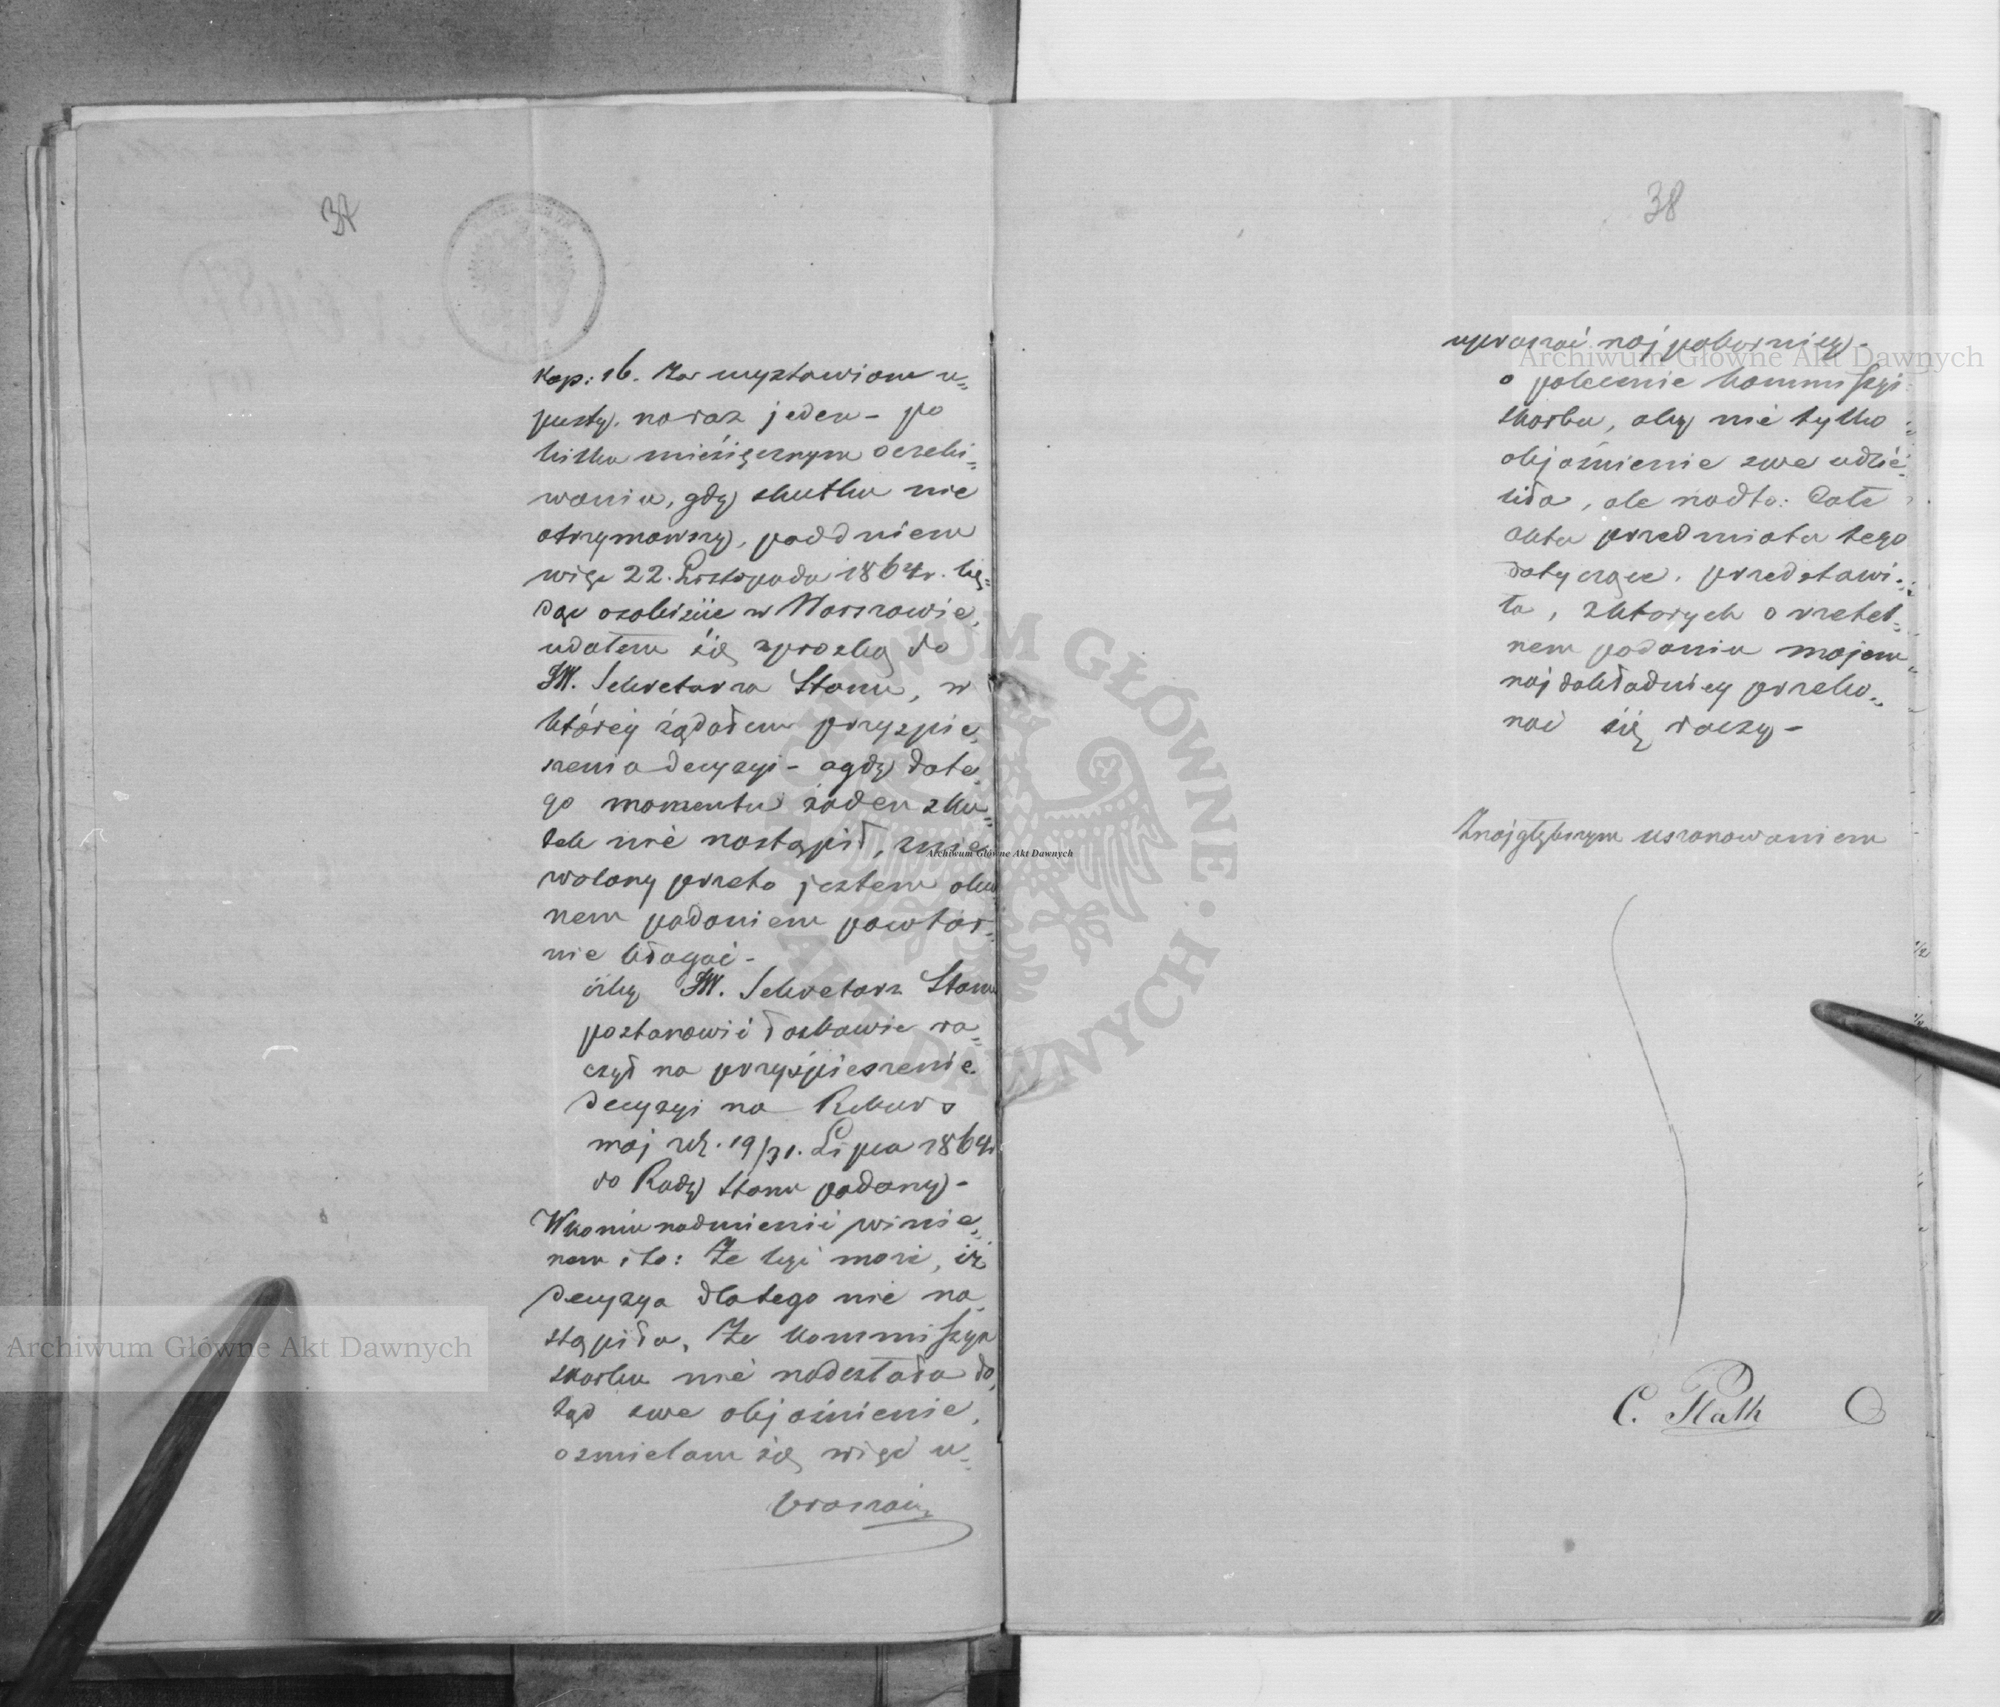 37
kop: 16. Za wystawione u=
pusty, na raz jeden – po
kilku miesięcznym oczeki=
waniu, gdy skutku nie
otrzymawszy, pod dniem
więc 22. Listopada 1864r. bę=
dąc osobiście w Warszawie,
udałem się z prozbą do
JW. Sekretarza Stanu, w
któréy żądałem przyspie=
szenia decyzyi – a gdy do te=
go momentu żaden sku=
tek nie nastąpił, znie=
wolony przeto jestem obec
nem podaniem powtór=
nie błagać –
iżby JW. Sekretarz Stanu
postanowić łaskawie ra=
czył na przyśpieszenie
decyzyi na Rekurs
mój z d. 19/31. Lipca 1864r
do Rady Stanu podany –
W końcu nadmienić winie=
nem i to: Że być może, iż
decyzya dlatego nie na=
stąpiła, że Kommissya
Skarbu nie nadesłała do=
tąd swe objaśnienie,
ośmielam się więc u=
praszać
38
upraszać najpokorniey –
o polecenie Kommissyi
Skarbu, aby nie tylko
objaśnienie swe udzie=
liła, ale nadto: Całe
akta przedmiotu tego
dotyczące, przedstawi=
ła, z których o rzetel=
nem podaniu mojem
najdokładniey przeko=
nać się raczy –
Z najgłębszym uszanowaniem
C. Plath
Archiwum Główne Akt Dawnych
Archiwum Główne Akt Dawnych
Archiwum Główne Akt Dawnych
ARCHIWUM GŁÓWNE · AKT DAWNYCH ·